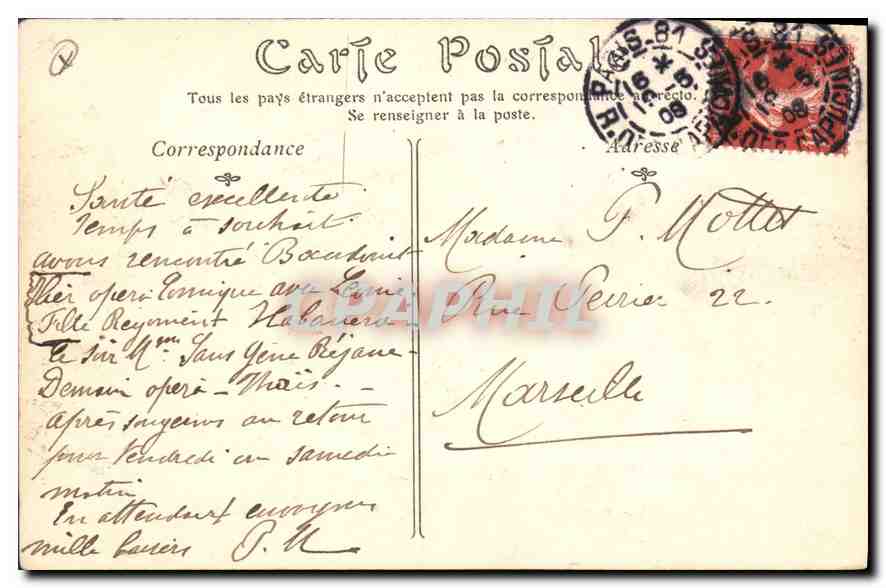 Carte Postale
Tous les pays étrangers n'acceptent pas la correspondance au recto.
Se renseigner à la poste.
PARIS-81
16 * 5
08
R. DES CAPUCINES
Correspondance
Adresse
Santé excellente
temps à souhait
avons rencontré
hier opera Comique avec Leonie
Fille Regiment Habanera
ce soir Mme Sans Gêne Réjane -
Demain opera - Thaïs. -
après songerons au retour
pour Vendredi ou samedi
matin
En attendant envoyons
mille baisers P. M
Madame P. Mottet
Rue Ferrier 22.
Marseille
CPAPHIL